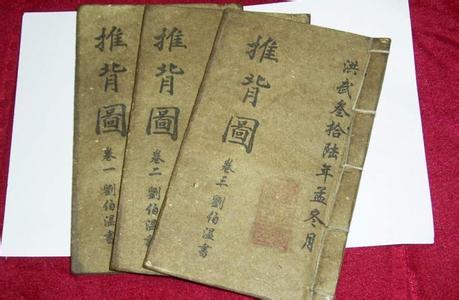 推背圖
卷一 劉伯溫書
推背圖
卷二 劉伯溫書
洪武叁拾陸年孟冬月
推背圖
卷三 劉伯溫書